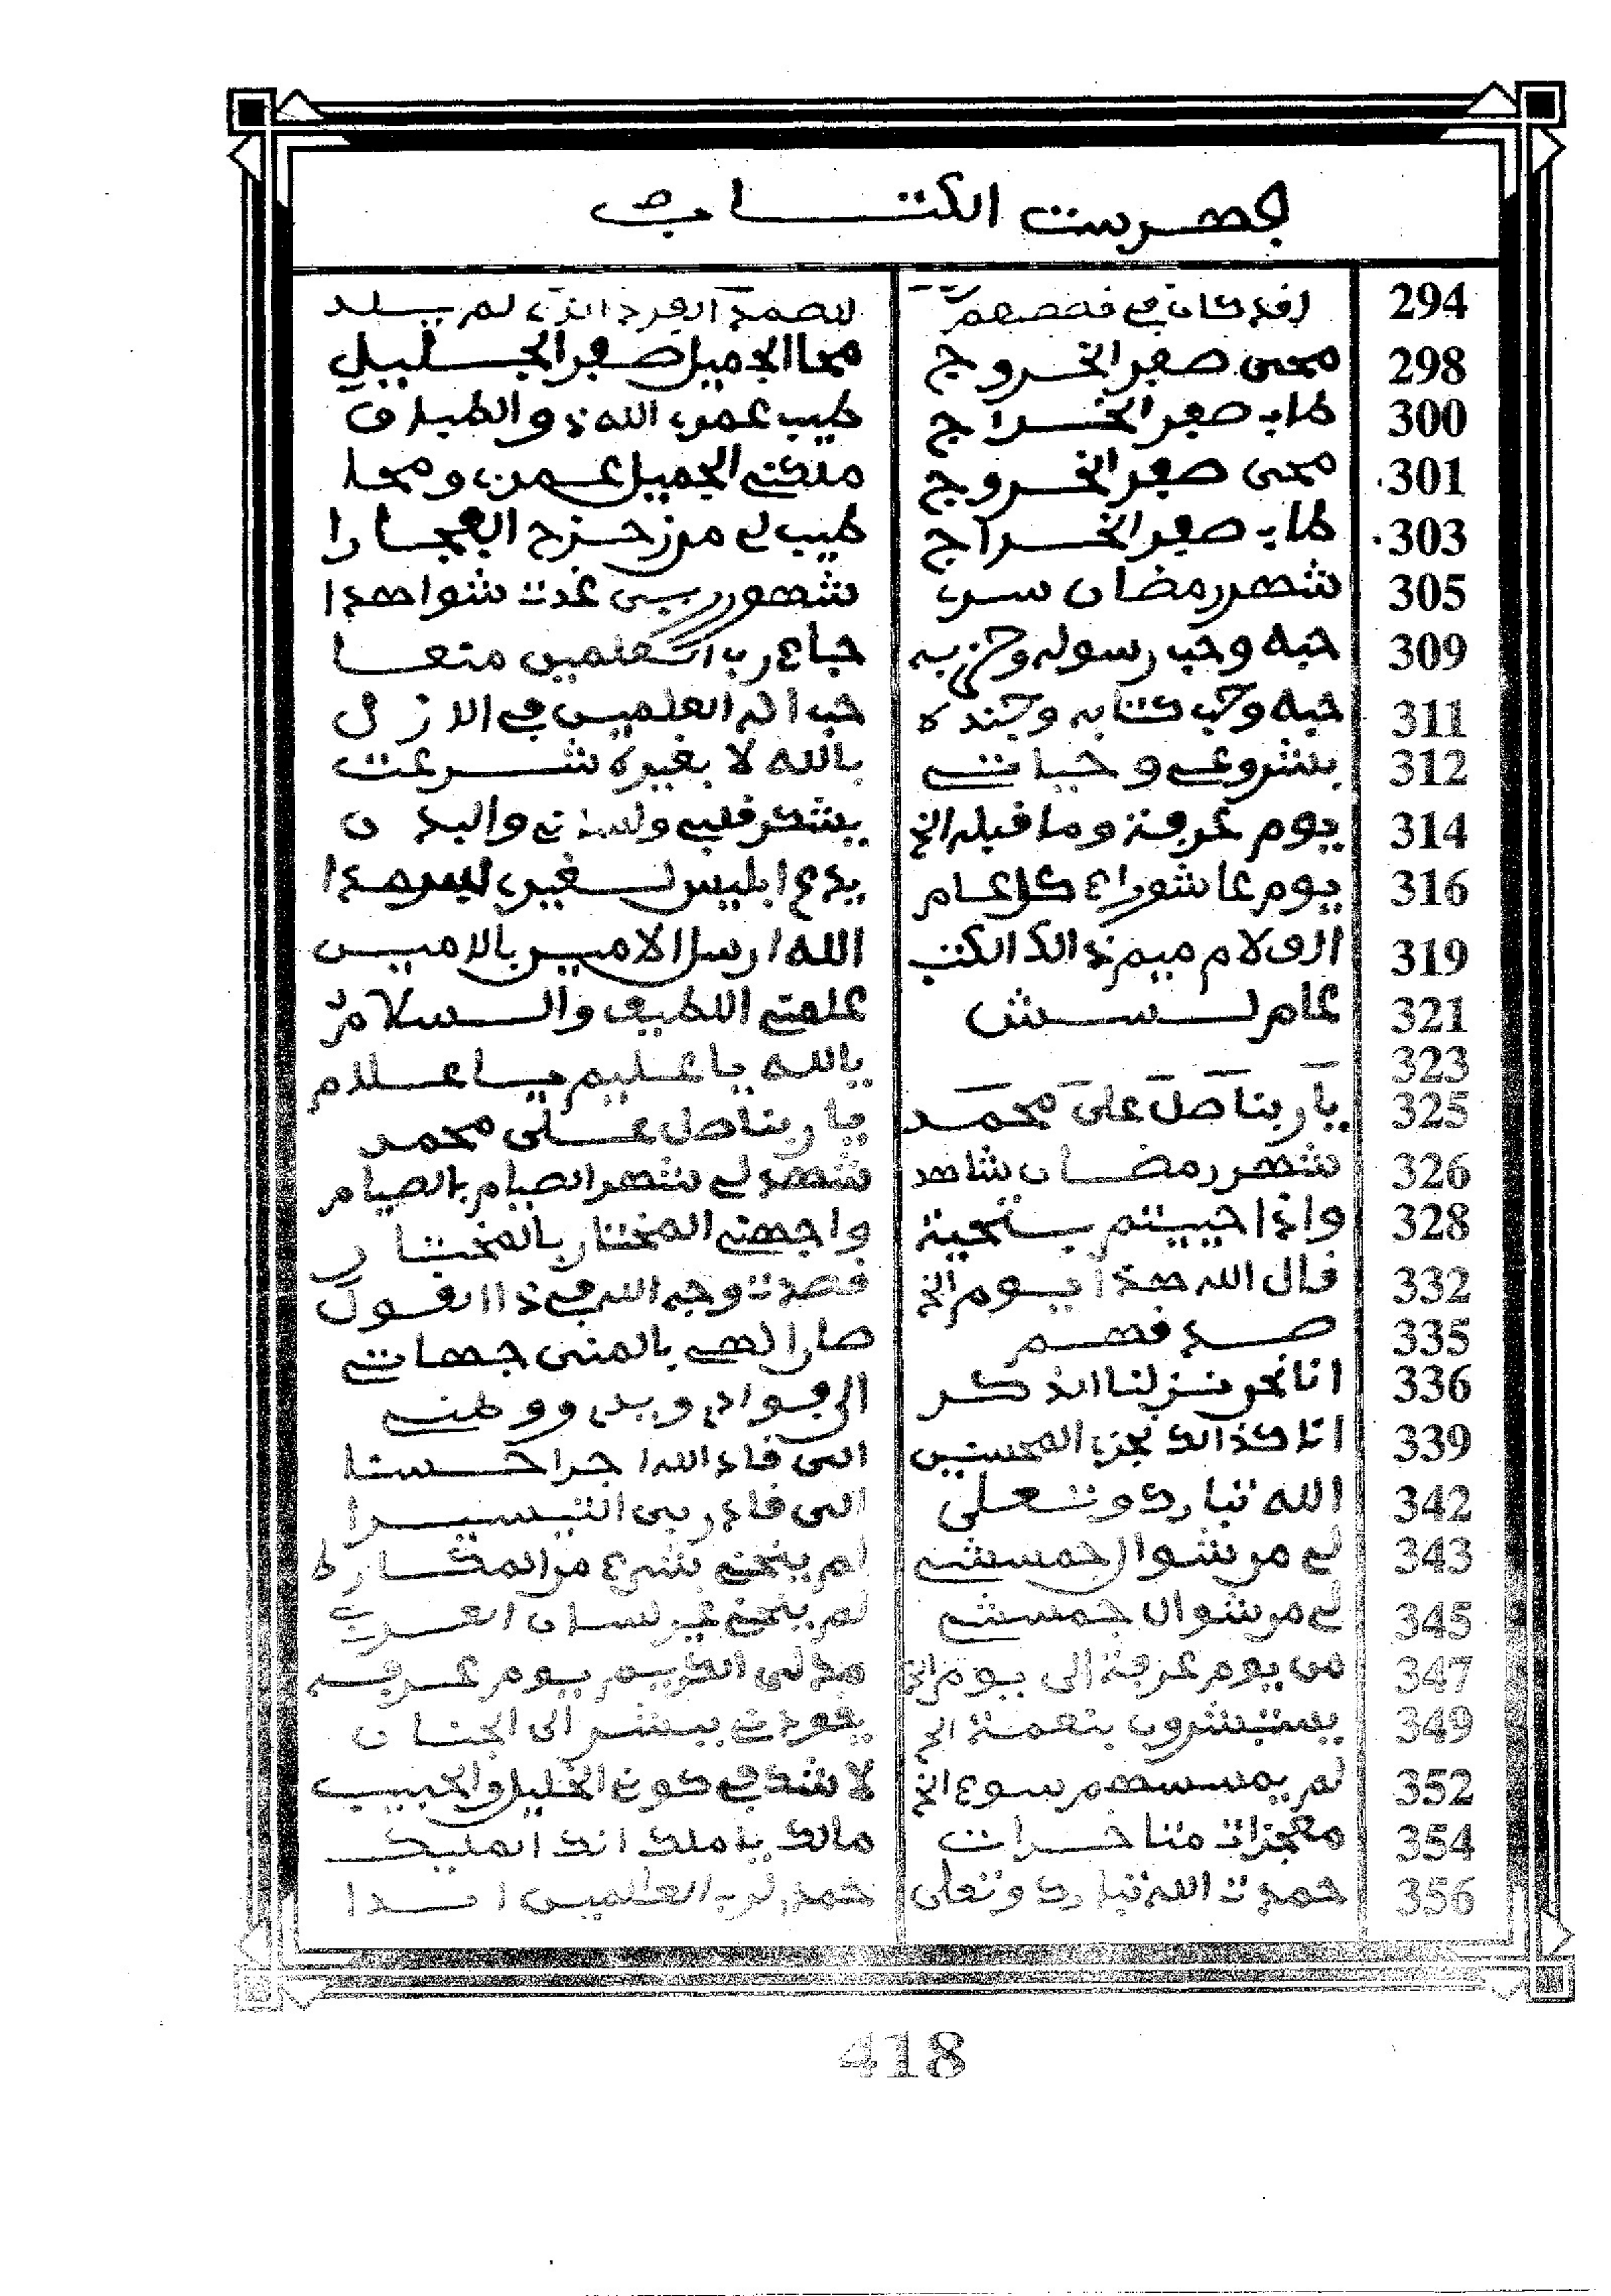 فهرست الكتاب
294 لقد كان في قصصهم للصمد الفرد الذي لم يلد
298 محى صفر الخروج محا الجميل صفر الجليل
300 طاب صفر الخراج طيب عمري الله ذو الطباق
301 محى صفر الخروج ملكني الجميل عمري ومحا
303 طاب صفر الخراج طيب لي من زحزح الفجارا
305 شهر رمضان سرى شهور ربي غدت شواهدا
309 حبه وحب رسوله وحزبه جاء رب العلمين متعا
311 حبه وحب كتابه وجنده حب اله العلمين في الازل
312 بشروعي وحياتي بالله لا بغيره شرعت
314 يوم عرفة وما قبله الخ يشكر قلبي ولساني والبدن
316 يوم عاشوراء كل عام يدع ابليس لغيري
319 الف لام ميم ذالك الكتب الله ارسل الامين بالامين
321 عام لسش علمني اللطيف والسلام
323 يالله يا عليم يا علام
325 يا ربنا صل على محمد يا ربنا صل على محمد
326 شهر رمضان شاهد شهد لي شهر الصيام بالصيام
328 واذا حييتم بتحية واجهني المختار بالمختار
332 قال الله هذا يوم الخ قصدت وجه الله في ذا القول
335 صد فهم صار الهي بالمنى جهات
336 انا نحن نزلنا الذكر الى فؤادي ويدي ووطني
339 انا كذالك نجزي المحسنين الى قاد الله اجرا حسنا
342 الله تبارك وتعلى الى قاد ربي التيسيرا
343 لي من شوال جمسش لم ينحني شيء من المكاره
345 لي من شوال جمسش لم ينحني غير لسان العرب
347 من يوم عرفة الى يوم الخ مد لي الكريم يوم عرفه
349 يستبشرون بنعمة الخ يقودني ببشر الى الجنان
352 لم يمسسهم سوء الخ لا شك في كون الخليل والحبيب
354 معجزات متاخرات مالك يا ملك انك المليك
356 حمدت الله تبارك وتعلى حمدي لرب العالمين ابدا
418